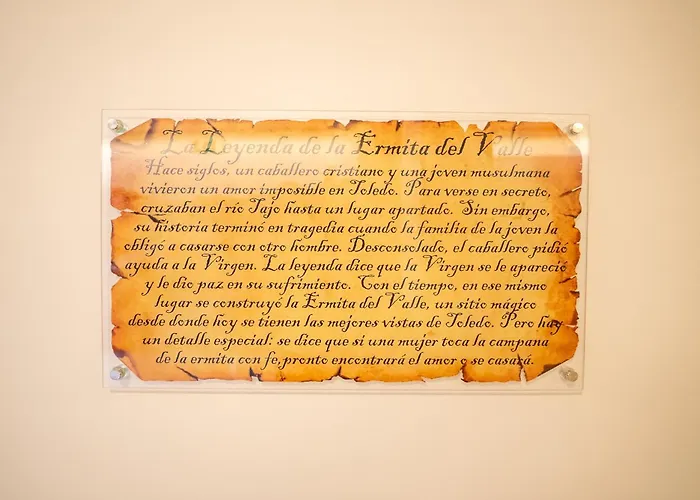 La Leyenda de la Ermita del Valle
Hace siglos, un caballero cristiano y una joven musulmana
vivieron un amor imposible en Toledo. Para verse en secreto,
cruzaban el río Tajo hasta un lugar apartado. Sin embargo,
su historia terminó en tragedia cuando la familia de la joven la
obligó a casarse con otro hombre. Desconsolado, el caballero pidió
ayuda a la Virgen. La leyenda dice que la Virgen se le apareció
y le dio paz en su sufrimiento. Con el tiempo, en ese mismo
lugar se construyó la Ermita del Valle, un sitio mágico
desde donde hoy se tienen las mejores vistas de Toledo. Pero hay
un detalle especial: se dice que si una mujer toca la campana
de la ermita con fe,pronto encontrará el amor o se casará.